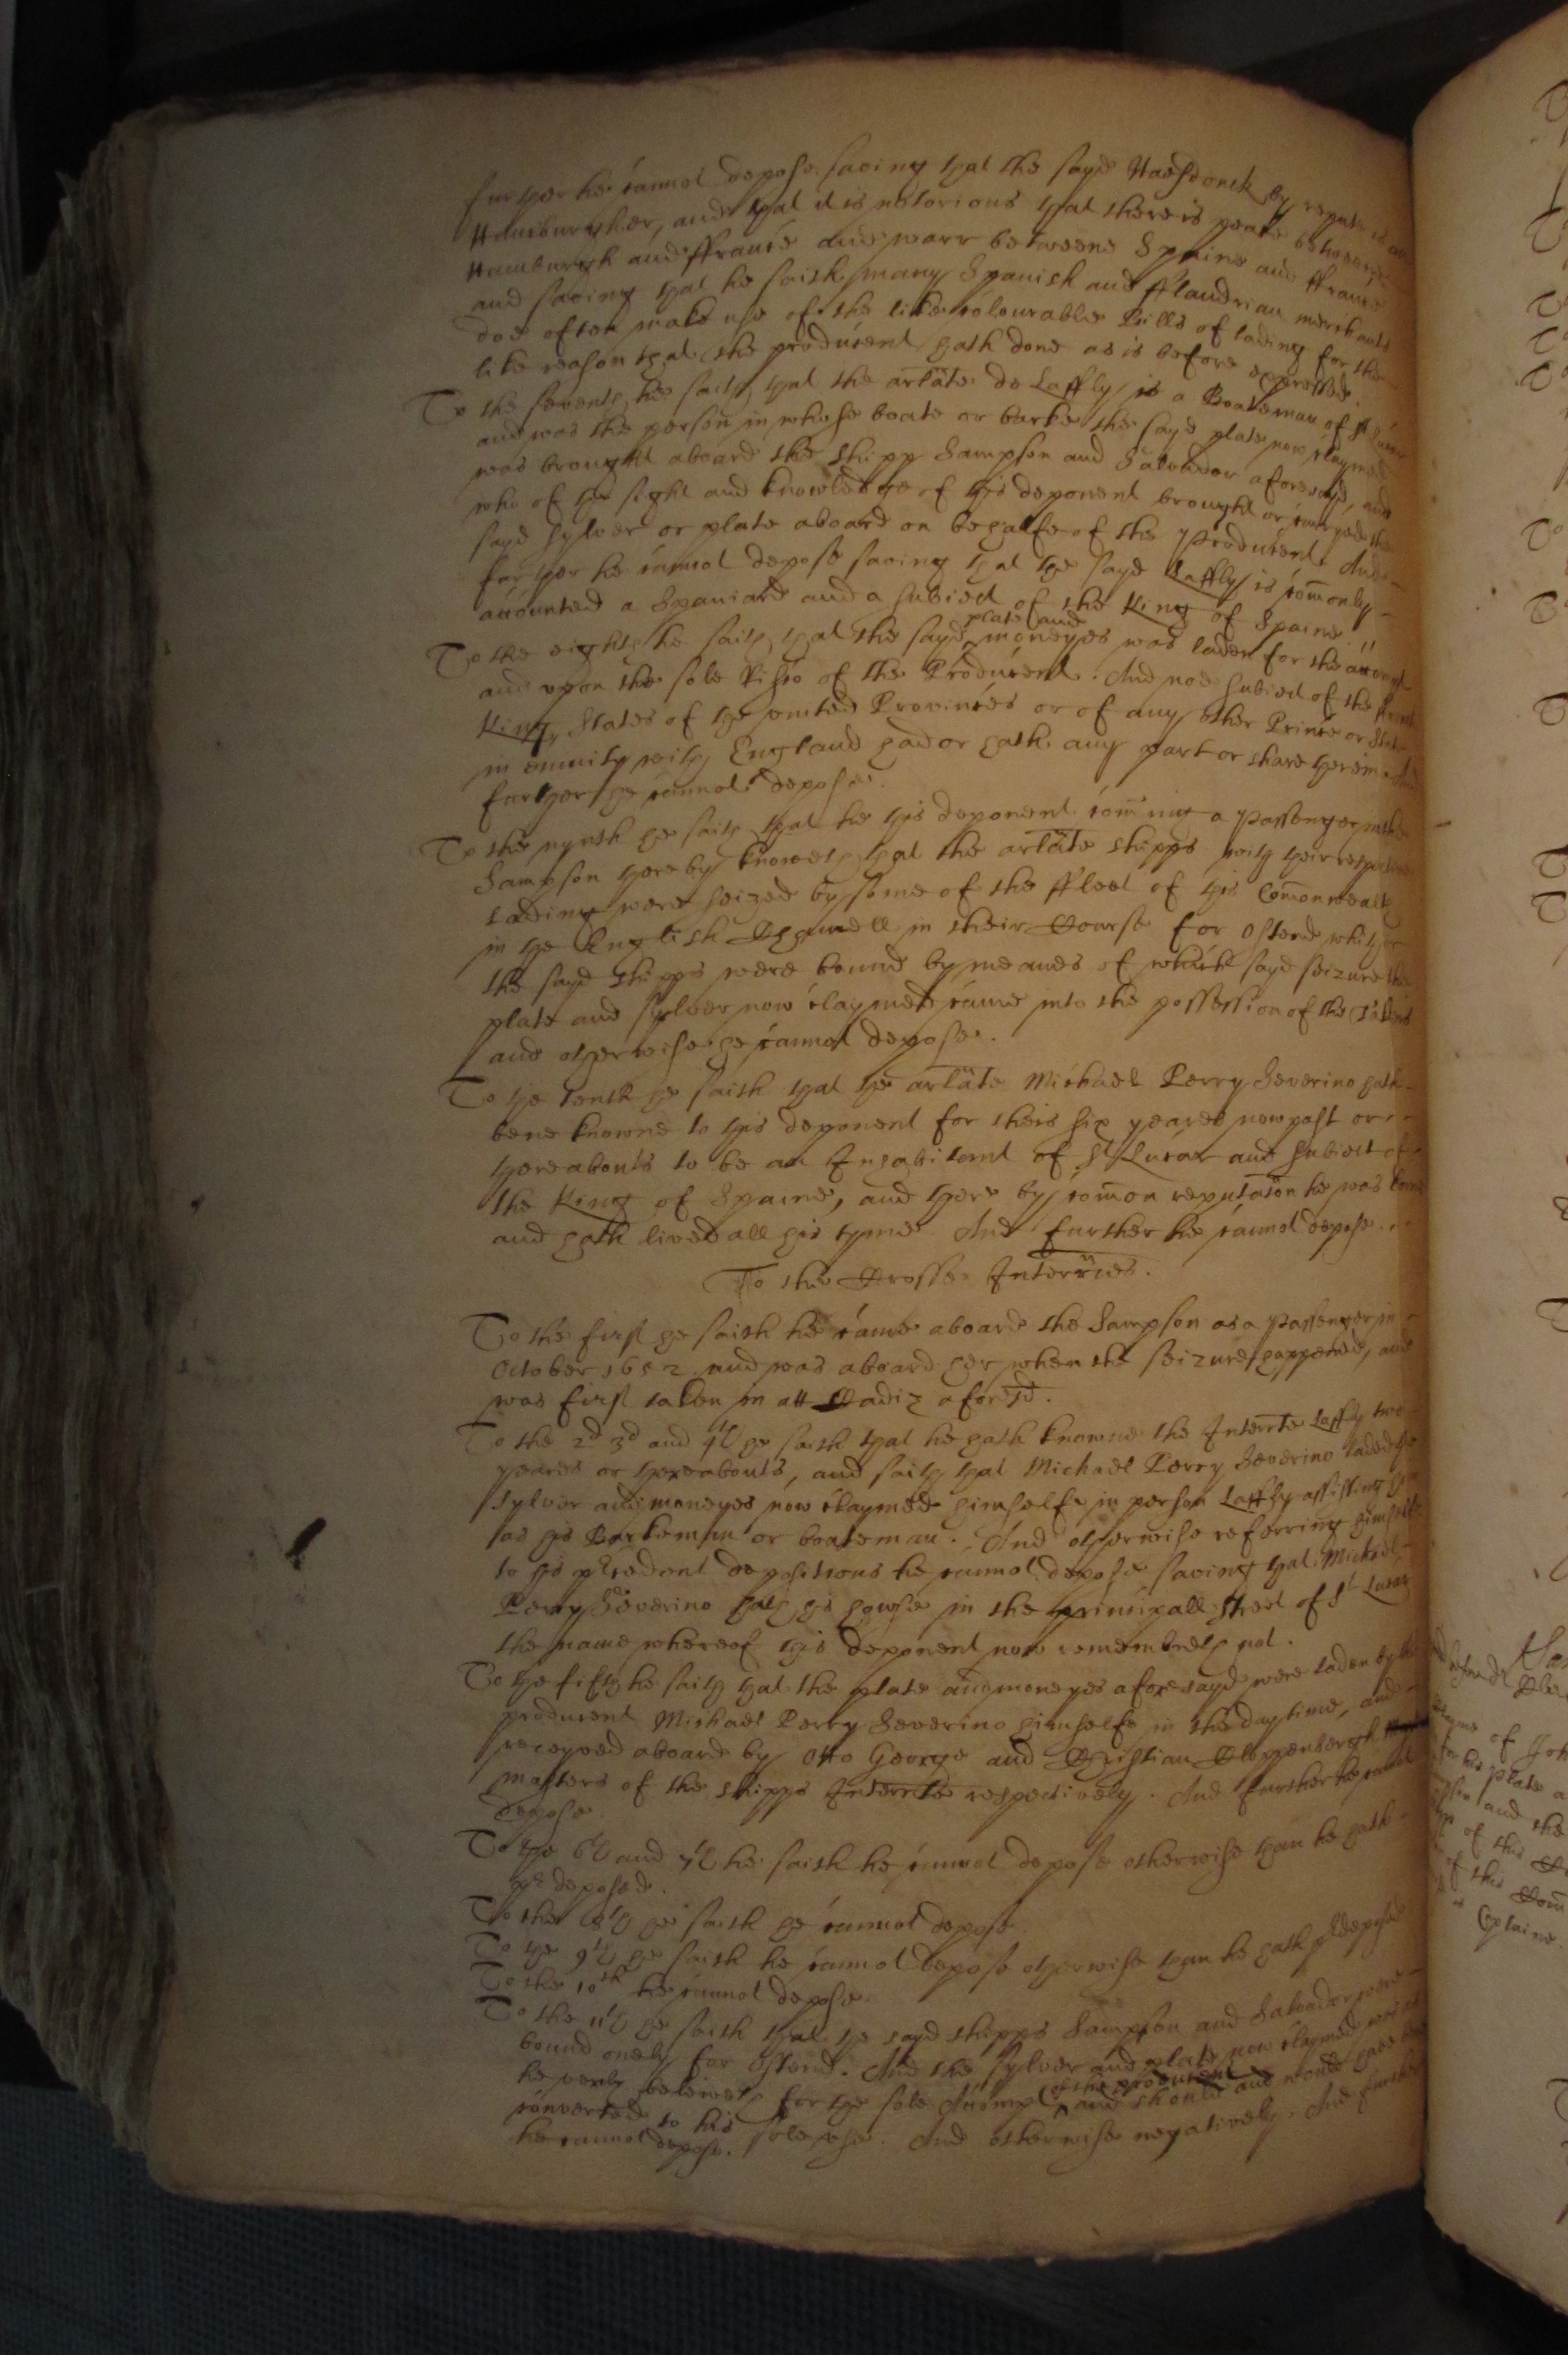 further hee cannot depose saving that the sayd Hasedonck by repute is an
Hamburgher, and that it is notorious that there is peace betweene
Hamburgh and ffrance and warr betweene Spaine and ffrance
and saving that he saith many Spanish and fflandrian merchants
doe often make use of the like colourable Bills of lading for the
like reason that the producent hath done as is before expressed.
To the seventh he saith that the arlate de Laffly is a Boateman of St Lucar
and was the person in whose boate or barke the sayd plate now claymed
was brought aboard the shipp Sampson and Salvador aforesayd, and
who of the sight and knowledge of this deponent brought or carryed the
sayd sylver or plate aboard on behalfe of the Producent. And
further he cannot depose saving that the sayd Laffly is comonly
accounted a Spaniard and a subiect of the King of Spaine
To the eighth he saith that the sayd plate and moneyes was laden for the account
and upon the sole Risro of the Producent. And noe subiect of the french
King, States of the united Provinces or of any other Prince or State
in emnity with England had or hath any part or share therein. And
further he cannot depose.
To the nynth he saith that he this deponent coming a passenger in the
Sampson thereby knoweth that the arlate shipps with their respective
lading were seized by some of the ffleet of this Comonwealth
in the English Channell in their Course for Ostend whither
the sayd shipps were bound by meanes of which sayd seizure the
plate and sylver now claymed came into the possession of the Takers
and otherwise he cannot depose.
To the tenth he saith that the arlate Michael Perry Severino hath
bene knowne to this deponent for theis six yeares now past or
thereabouts to be an Inhabitant of St Lucar and subiect of
the King of Spaine, and there by comon reputation he was borne
and hath lived all his tyme And further he cannot depose.
To the Crosse Interries.
To the first he saith he came aboard the Sampson as a passenger in
October 1652 and was aboard her when the seizure happened, and
was first taken in att Cadiz aforesd.
To the 2d 3d and 4th he saith that he hath knowne the Interrte Laffly two
yeares or thereabouts, and saith that Michael Perry Severino laded the
sylver and moneyes now claymed himselfe in person Laffly assisting
as his Barkeman or boateman. And otherwise referring himselfe
to his precedent depositions he cannot depose saving that Michael
Perry Severino hath his howse in the principall Street of St Lucar
the name whereof this deponent now remembreth not.
To the fifth he saith that the plate and moneyes aforesayd were laden by the
producent Michael Perry Severino himselfe in the day time, and
receyved aboard by Otto George and Christian Cloppenbergh
masters of the shipps Interrte respectively. And further he cannot
depose.
To the 6th and 7th he saith he cannot depose otherwise than he hath
predeposed.
To the 8th he saith he cannot depose
To the 9th he saith he cannot depose otherwise than he hath predeposed
To the 10th he cannot depose
To the 11th he saith that the sayd shipps Sampson and Salvador were
bound onely for Ostend. And the sylver and plate now claymed was
he verily beleiveth for the sole Accompt of the producent and should and would have bene
converted to his sole use. And otherwise negatively. And further
he cannot depose.